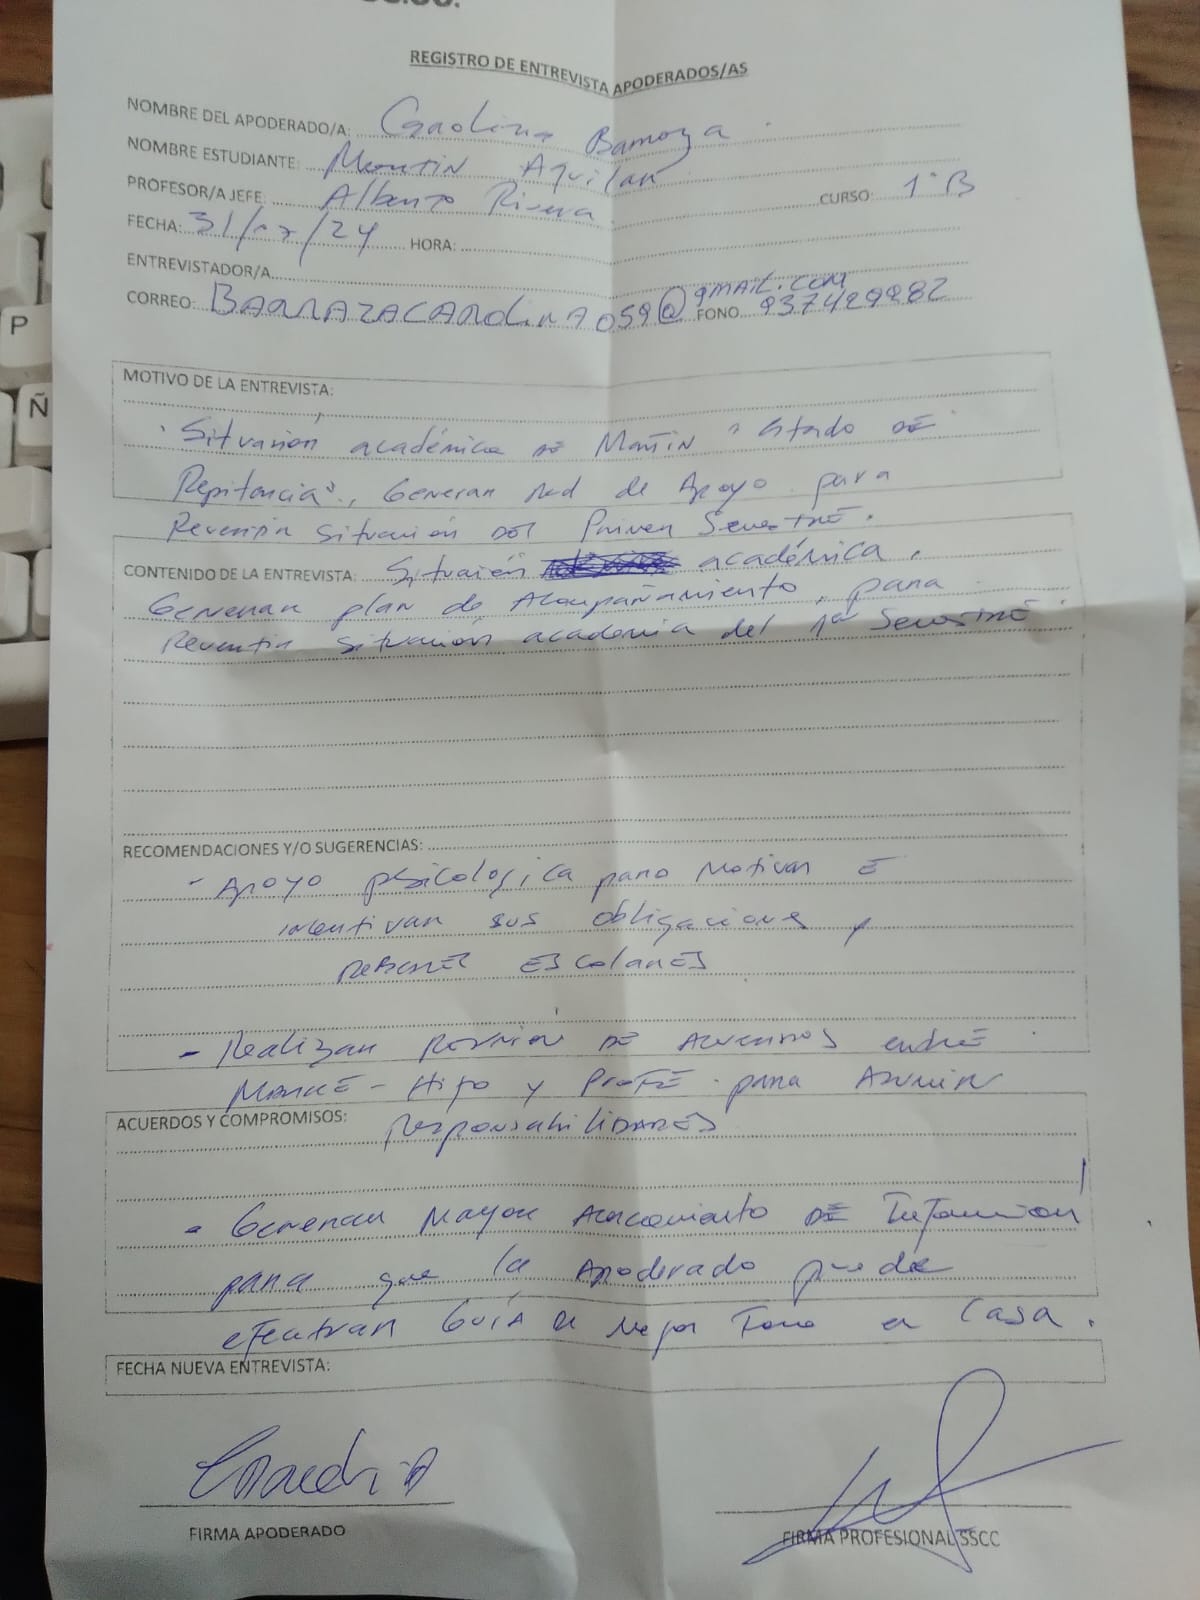 REGISTRO DE ENTREVISTA APODERADOS/AS
NOMBRE DEL APODERADO/A: Carolina Barraza
NOMBRE ESTUDIANTE: Martin Aguilar
PROFESOR/A JEFE: Alberto Rivera CURSO: 1°B
FECHA: 31/07/24 HORA:
ENTREVISTADOR/A
CORREO: BARRAZACAROLINA059@gmail.com FONO 937429982
MOTIVO DE LA ENTREVISTA:
· Situación académica de Martin "estado de
Repitencia", Generar red de Apoyo para
Revertir situación del Primer Semestre.
CONTENIDO DE LA ENTREVISTA: Situación académica.
Generar plan de Acompañamiento, para
Revertir situación academia del 1er Semestre
RECOMENDACIONES Y/O SUGERENCIAS:
- Apoyo psicologica para Motivar E
incentivar sus obligaciones y
deberes escolares
- Realizar Revisión de Acuerdos entre
Madre - Hijo y Profe para Asumir
Responsabilidades
ACUERDOS Y COMPROMISOS:
- Generar Mayor de Información
para que la Apoderado puede
efectuar Guía de Mejor Forma en Casa.
FECHA NUEVA ENTREVISTA:
FIRMA APODERADO
FIRMA PROFESIONAL SSCC
P
Ñ